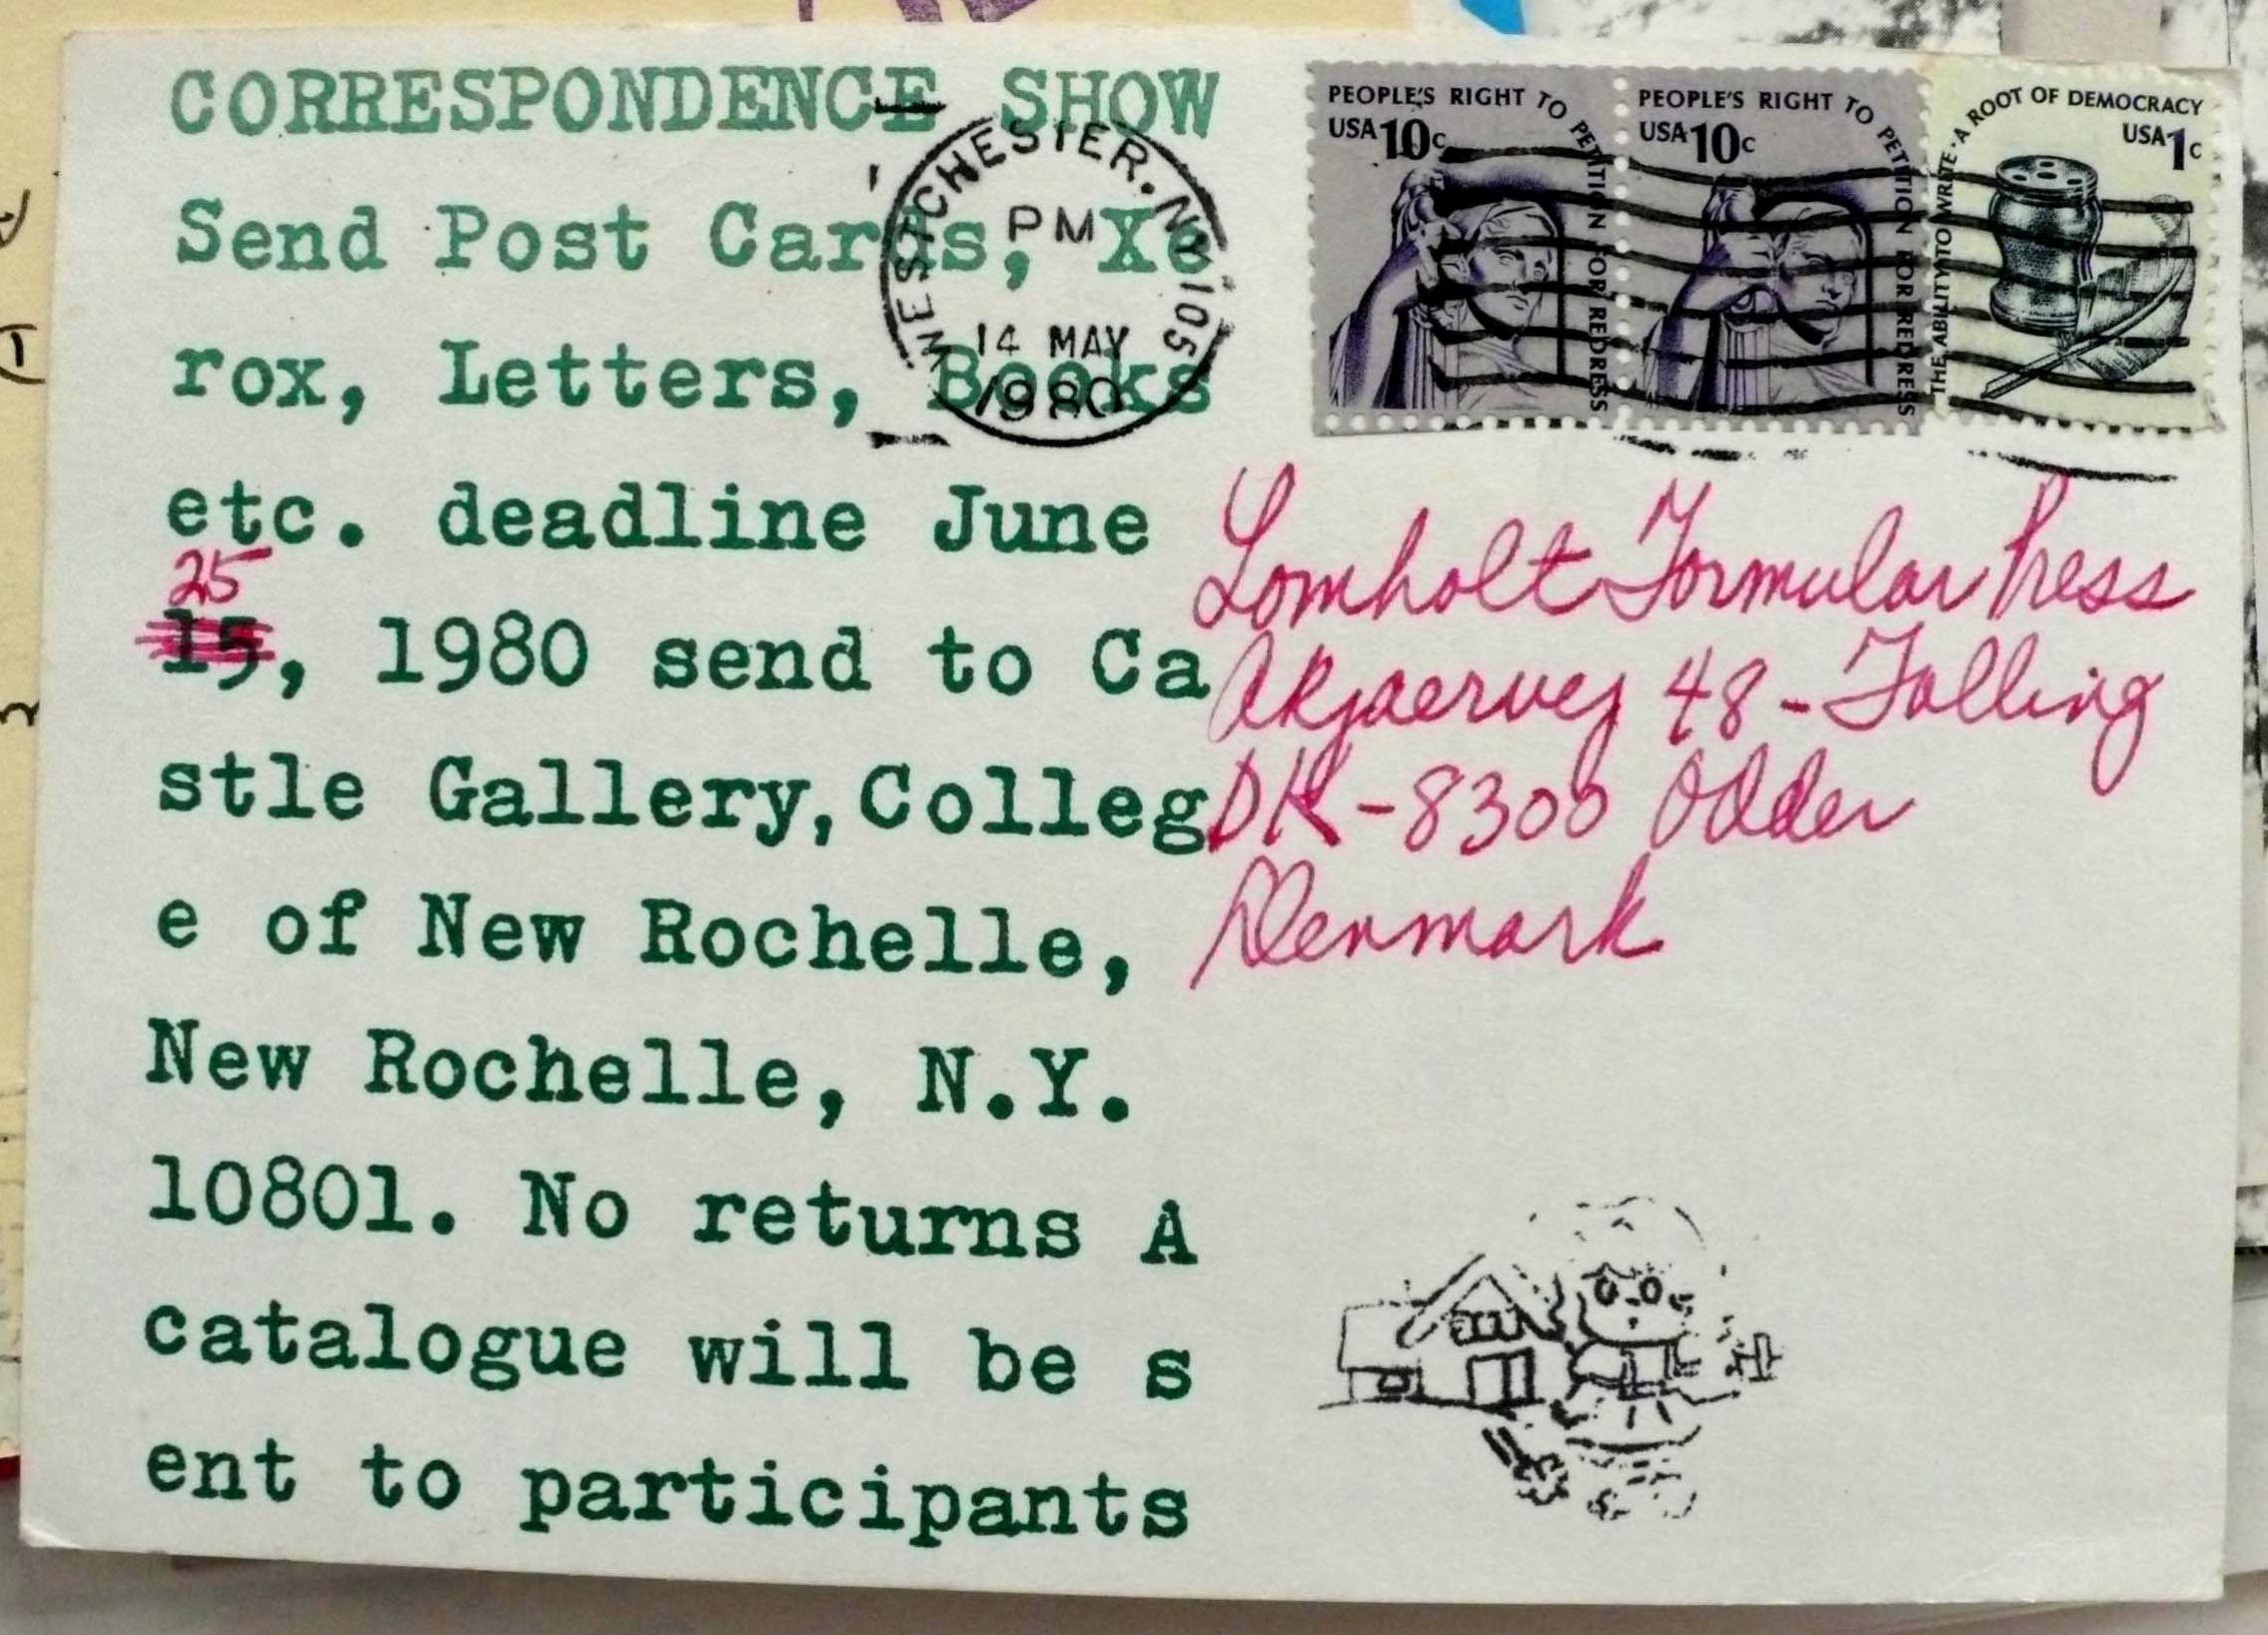 CORRESPONDENCE SHOW
Send Post Cards, Xe
rox, Letters, Books
etc. deadline June
25
15, 1980 send to Ca
stle Gallery, Colleg
e of New Rochelle,
New Rochelle, N.Y.
10801. No returns A
catalogue will be s
ent to participants
WESTCHESTER, NY 105
PM
14 MAY
1980
PEOPLE'S RIGHT TO PETITION FOR REDRESS
USA 10c
PEOPLE'S RIGHT TO PETITION FOR REDRESS
USA 10c
THE ABILITY TO WRITE · A ROOT OF DEMOCRACY
USA 1c
Lomholt Formular Press
Akjaervej 48 - Falling
DK-8300 Odder
Denmark